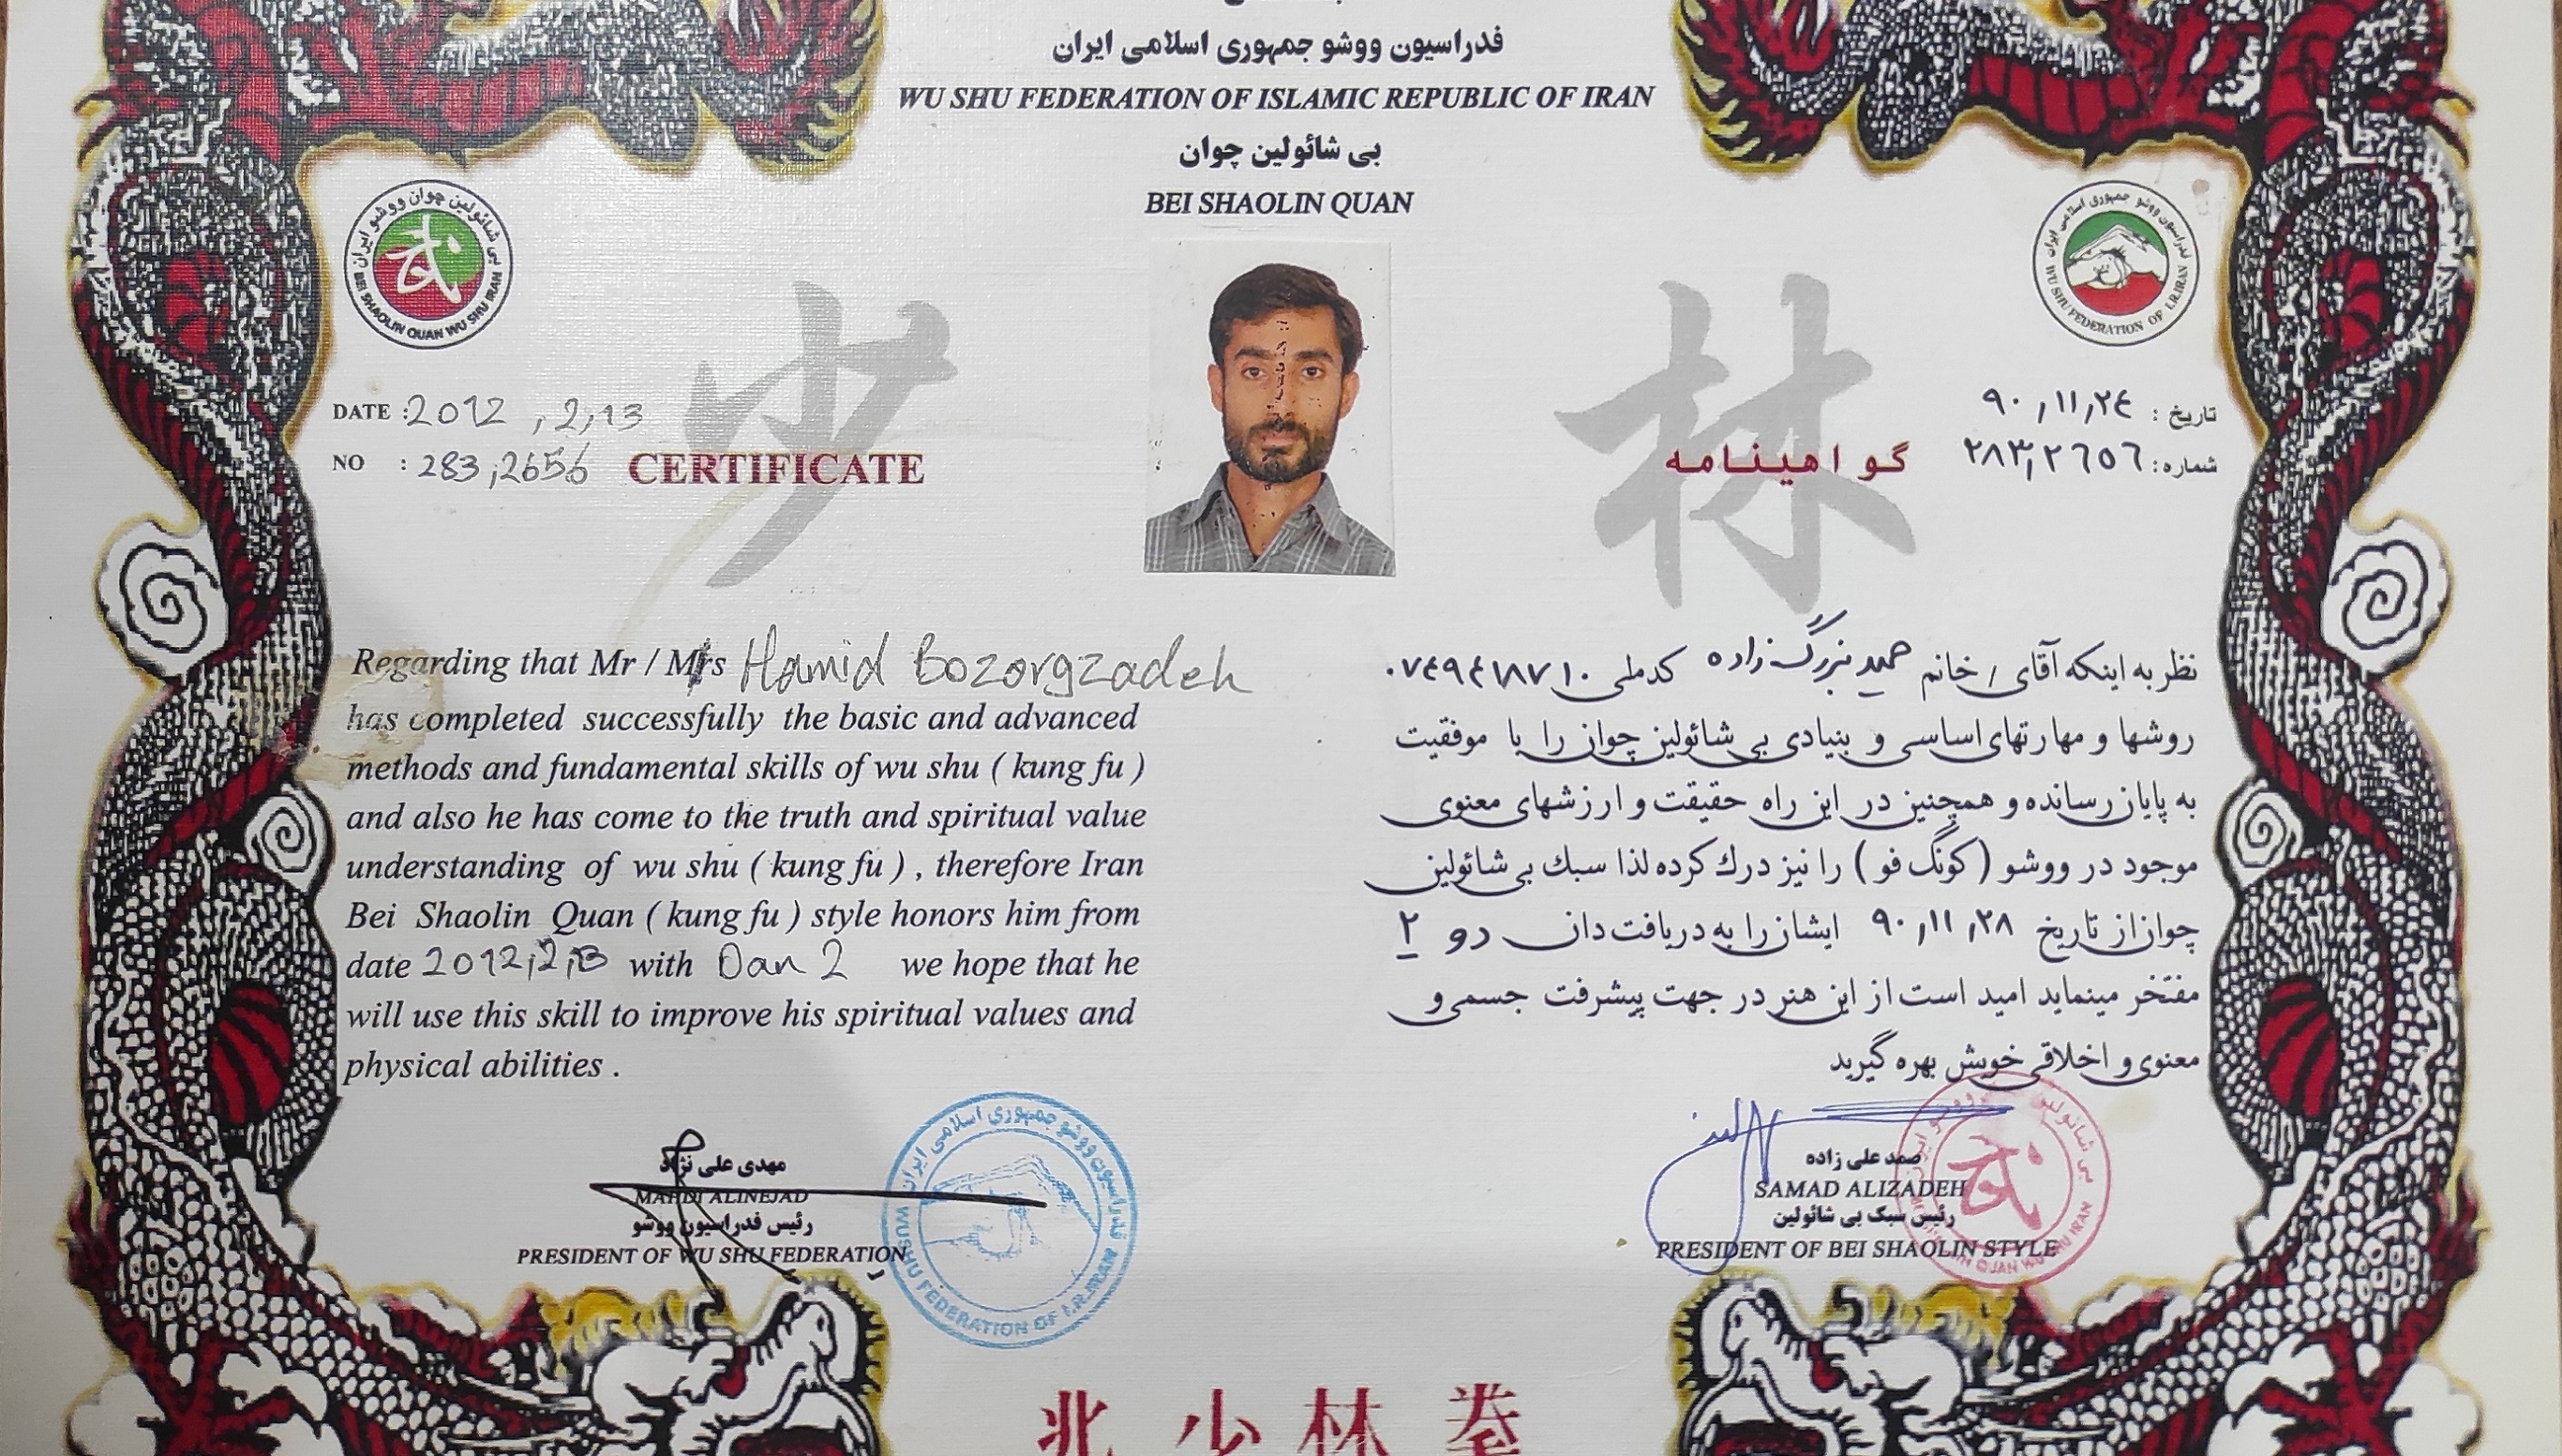 فدراسیون ووشو جمهوری اسلامی ایران
WU SHU FEDERATION OF ISLAMIC REPUBLIC OF IRAN
بی شائولین چوان
BEI SHAOLIN QUAN
بی شائولین چوان ووشو ایران
BEI SHAOLIN QUAN WU SHU IRAN
فدراسیون ووشو جمهوری اسلامی ایران
WU SHU FEDERATION OF I.R.IRAN
少林
DATE : 2012 , 2 , 13
NO : 283 , 2656
CERTIFICATE
تاریخ : ۹۰ , ۱۱ , ۲٤
شماره : ۲۸۳ , ۲٦٥٦
گواهینامه
Regarding that Mr / Mrs Hamid Bozorgzadeh
has completed successfully the basic and advanced
methods and fundamental skills of wu shu ( kung fu )
and also he has come to the truth and spiritual value
understanding of wu shu ( kung fu ) , therefore Iran
Bei Shaolin Quan ( kung fu ) style honors him from
date 2012,2,13 with Dan 2 we hope that he
will use this skill to improve his spiritual values and
physical abilities .
نظر به اینکه آقای / خانم حمید بزرگ زاده کدملی ۰۷٤۹٤۱۸۷۱۰
روشها و مهارتهای اساسی و بنیادی بی شائولین چوان را با موفقیت
به پایان رسانده و همچنین در این راه حقیقت و ارزشهای معنوی
موجود در ووشو (کونگ فو) را نیز درك کرده لذا سبك بی شائولین
چوان از تاریخ ۹۰ , ۱۱ , ۲۸ ایشان را به دریافت دان دو ۲
مفتخر مینماید امید است از این هنر در جهت پیشرفت جسمی و
معنوی و اخلاقی خویش بهره گیرید
مهدی علی نژاد
MAHDI ALINEJAD
رئیس فدراسیون ووشو
PRESIDENT OF WU SHU FEDERATION
فدراسیون ووشو جمهوری اسلامی ایران
WUSHU FEDERATION OF I.R.IRAN
صمد علی زاده
SAMAD ALIZADEH
رئیس سبک بی شائولین
PRESIDENT OF BEI SHAOLIN STYLE
北少林拳